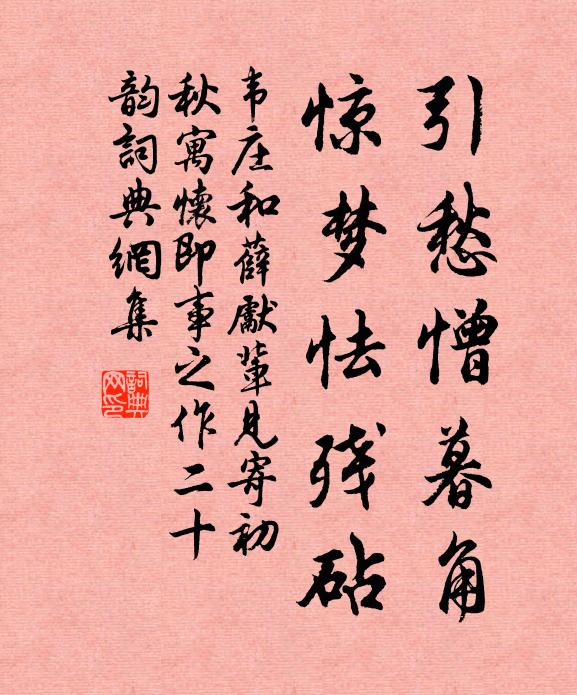 引愁憎暮角
惊梦怯残砧
韦庄和薛獻輩見寄初
秋寓懷即事之作二十
韵詞典網集
詞典
网印